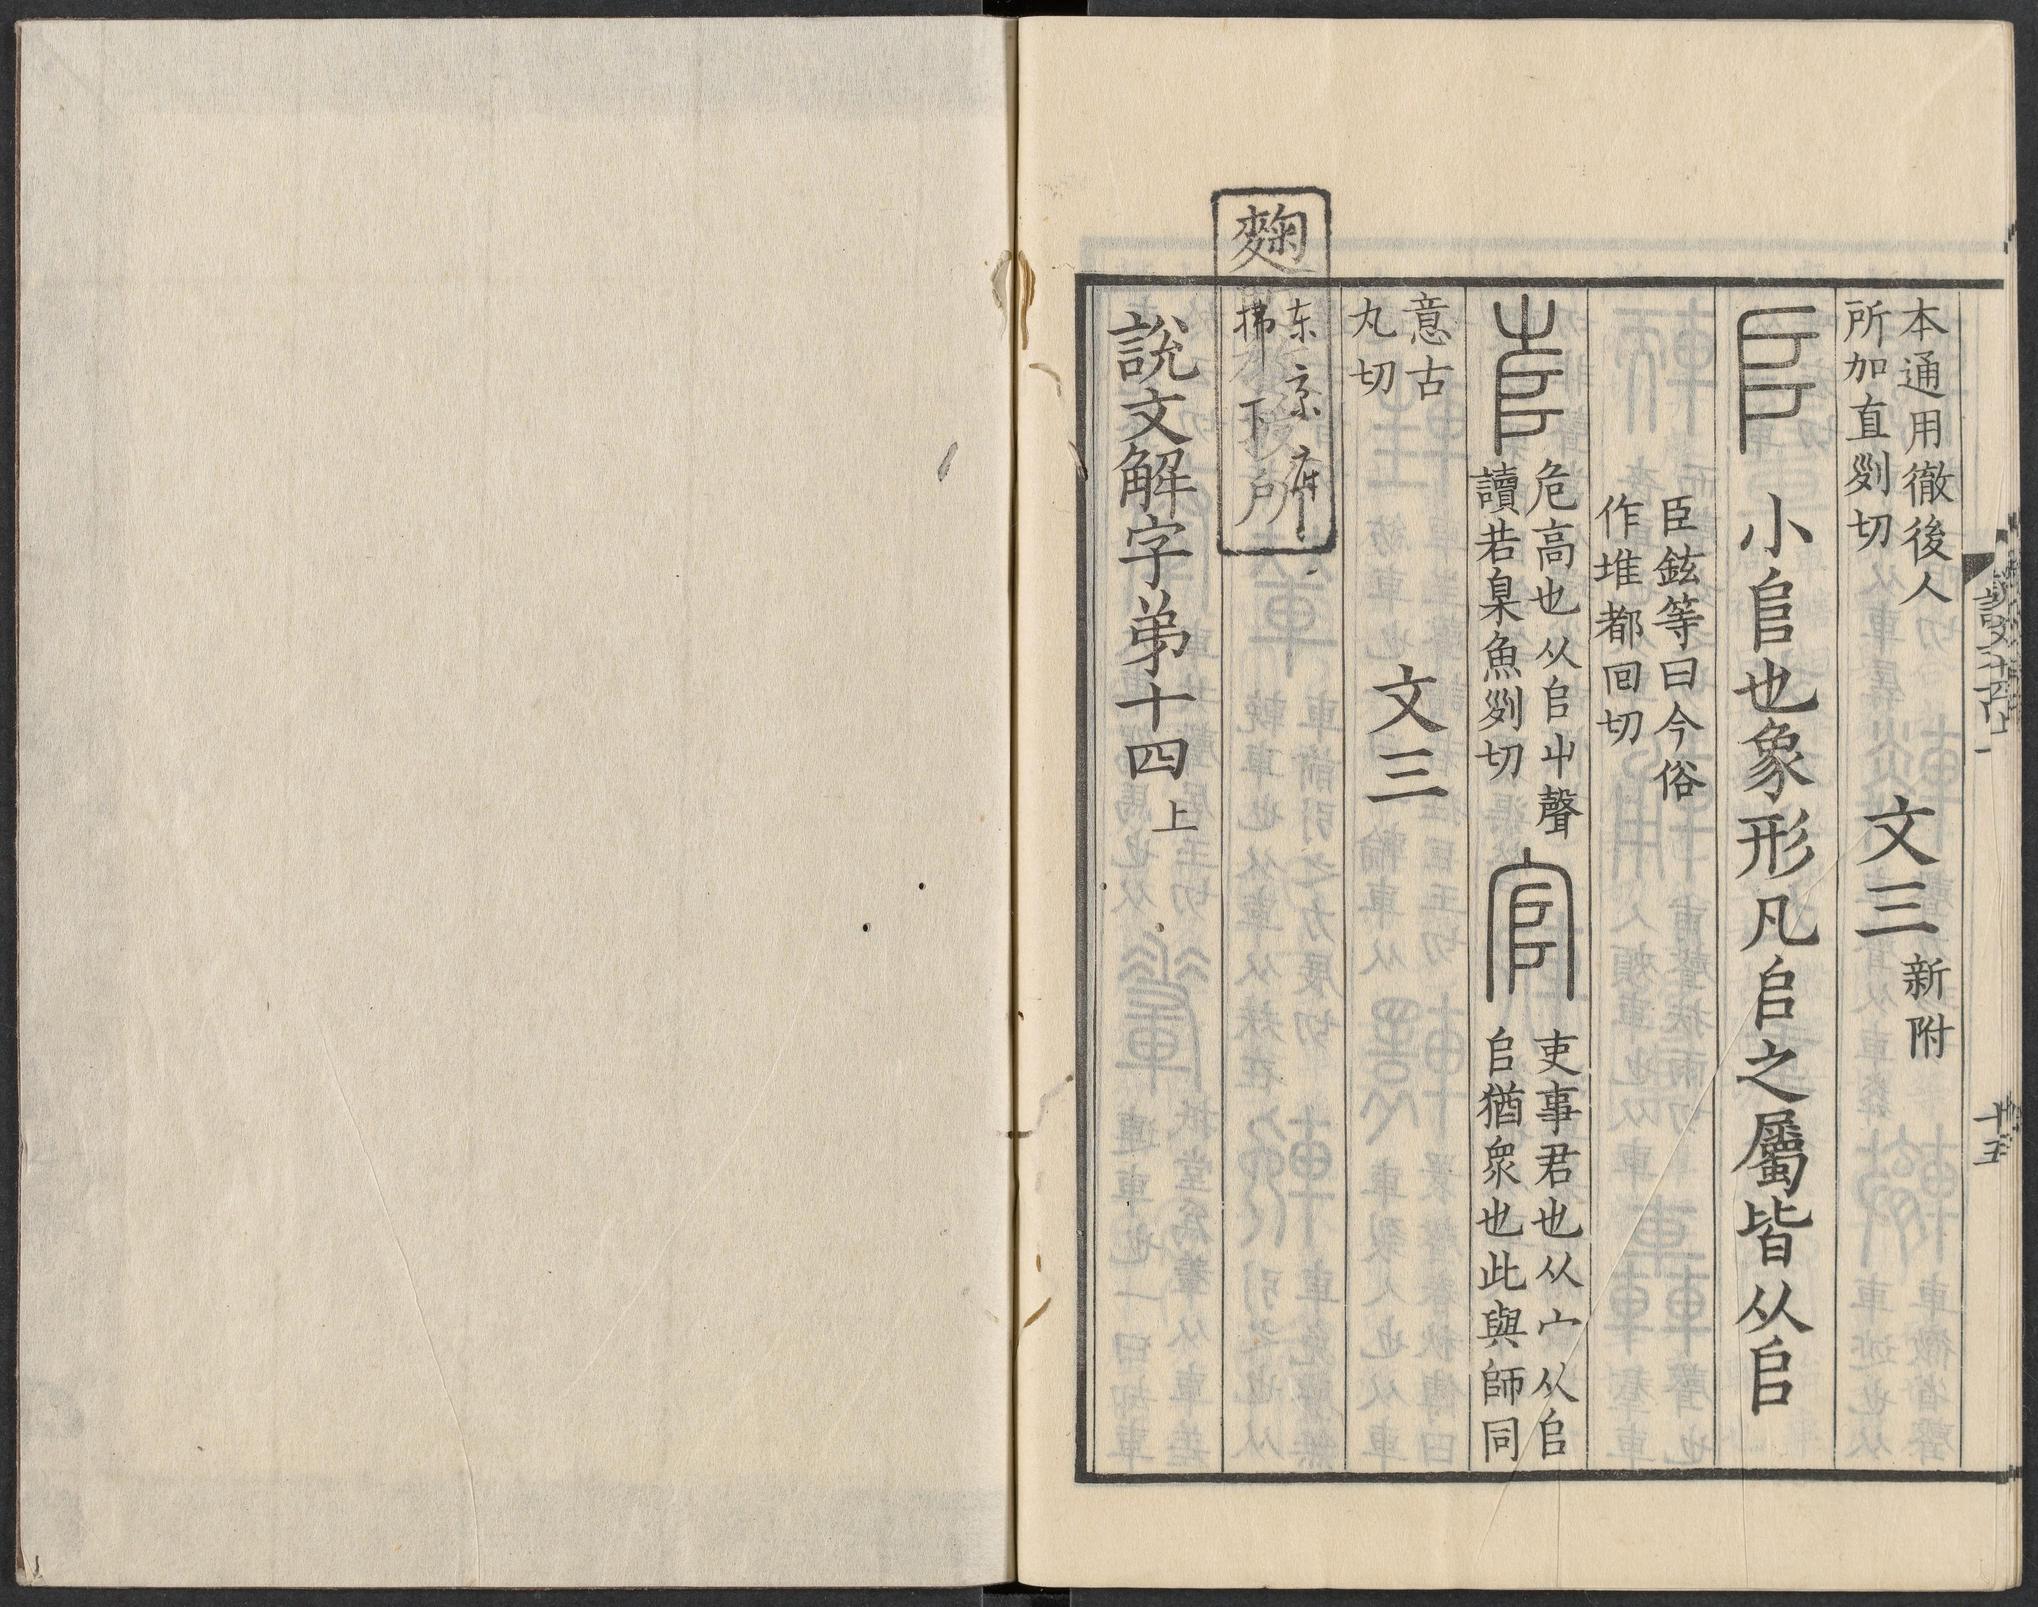 本通用徹後人
所加直列切
文三
新附
𠂤
小𠂤也象形凡𠂤之屬皆从𠂤
臣鉉等曰今俗
作堆都回切
𡴎
危高也从𠂤屮聲
讀若臬魚列切
官
吏事君也从宀从𠂤
𠂤猶衆也此與師同
意古
丸切
文三
説文解字弟十四上
説文十四上
十五